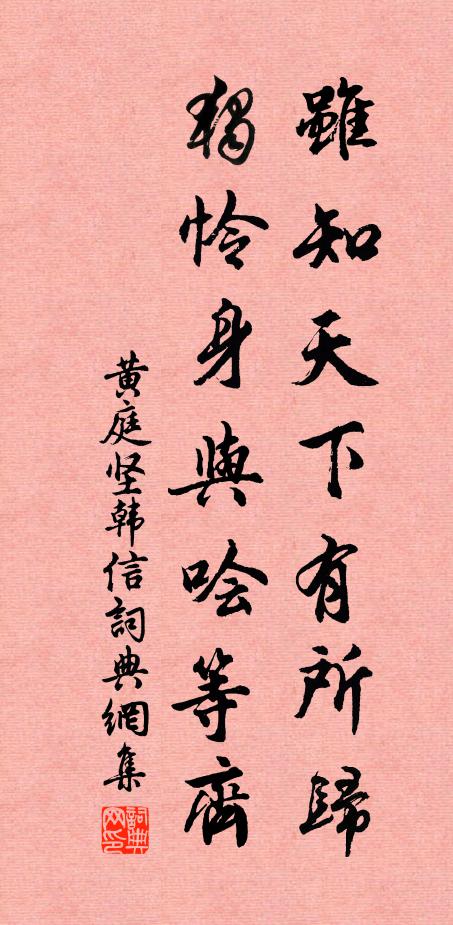 雖知天下有所歸
獨怜身與噲等齊
黄庭坚韩信詞典網集
詞典网印